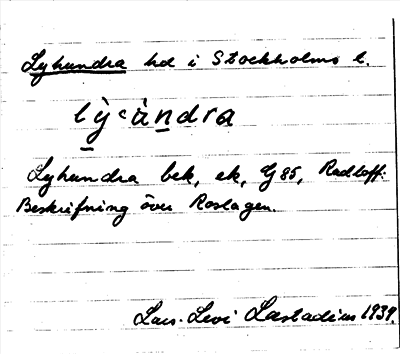 Lyhundra hd i Stockholms l.
lỳcàndra
Lyhundra bek, ek, G 85, Radloff:
Beskrifning över Roslagen.
Lars-Levi Læstadius 1939.